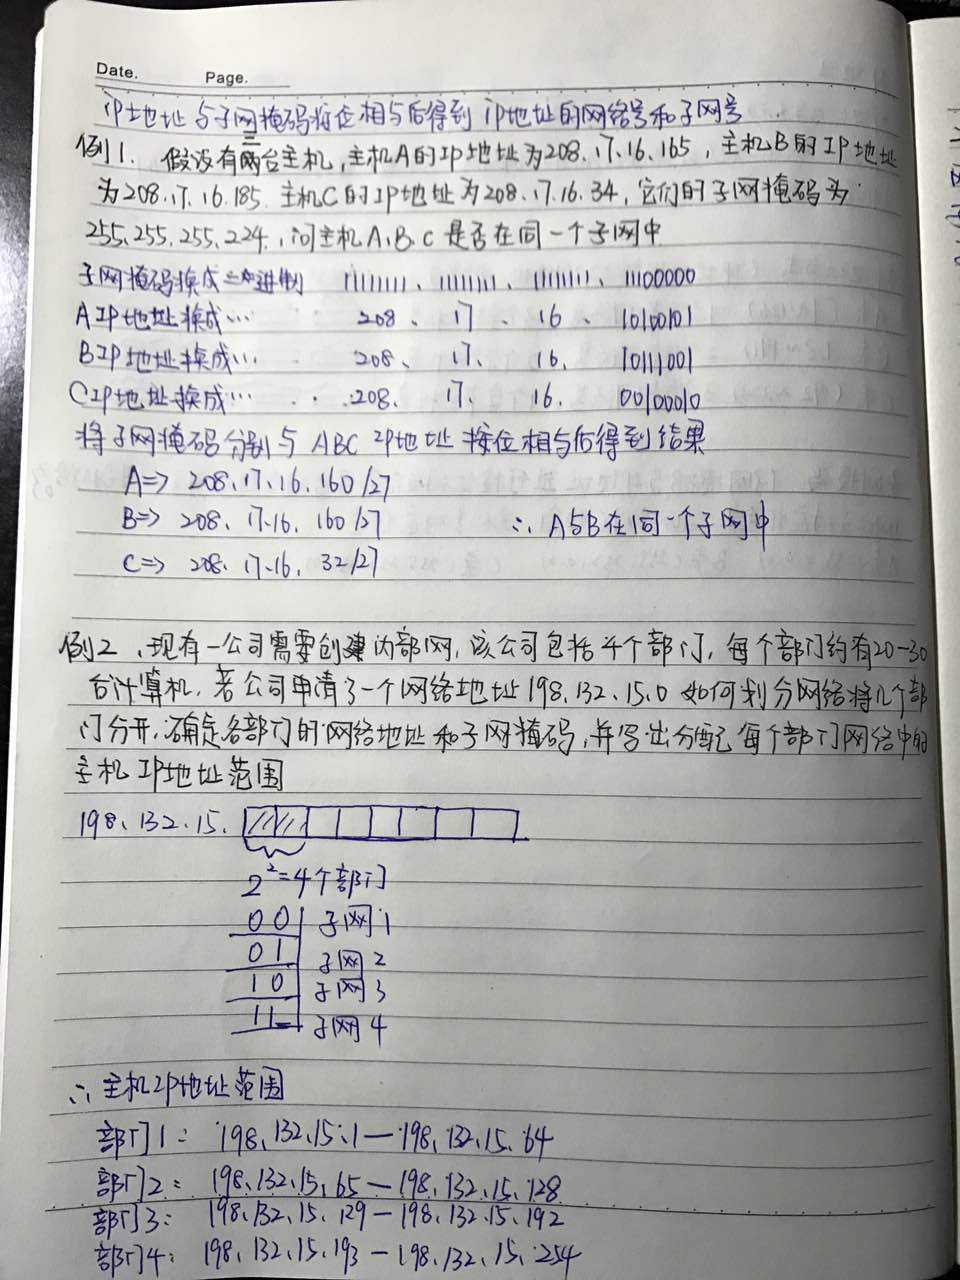 Date. Page.
IP地址与子网掩码按位相与后得到IP地址的网络号和子网号
例1. 假设有三台主机,主机A的IP地址为208.17.16.165,主机B的IP地址
为208.17.16.185.主机C的IP地址为208.17.16.34,它们的子网掩码为
255.255.255.224.,问主机A.B.C是否在同一个子网中
子网掩码换成二进制 11111111. 11111111. 11111111. 11100000
A IP地址换成… 208. 17. 16. 10100101
B IP地址换成… 208. 17. 16. 10111001
C IP地址换成… 208. 17. 16. 00100010
将子网掩码分别与ABC IP地址 按位相与后得到结果
A=> 208.17.16.160/27
B=> 208.17.16.160/27 ∴A与B在同一个子网中
C=> 208.17.16.32/27
例2、现有一公司需要创建内部网,该公司包括4个部门,每个部门约有20-30
台计算机,若公司申请了一个网络地址198.132.15.0 如何划分网络将几个部
门分开.确定各部门的网络地址和子网掩码,并写出分配每个部门网络中的
主机IP地址范围
198.132.15.
2²=4个部门
00 子网1
01 子网2
10 子网3
11 子网4
∴主机IP地址范围
部门1: 198.132.15.1—198.132.15.64
部门2: 198.132.15.65—198.132.15.128
部门3: 198.132.15.129—198.132.15.192
部门4: 198.132.15.193—198.132.15.254